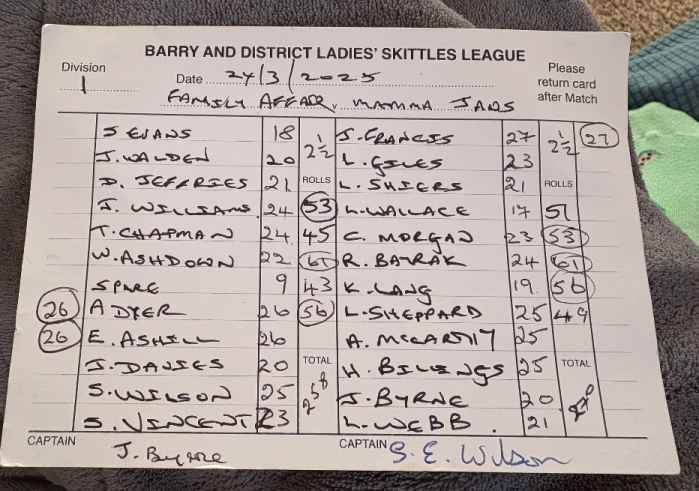 BARRY AND DISTRICT LADIES' SKITTLES LEAGUE
Division
1
Date 24/3/2025
Please
return card
after Match
FAMILY AFFAIR v MAMMA JADS
S EVANS 18 2½ J. FRANCIS 27 2½ 27
J. WALDEN 20 L. GILES 23
D. JEFFRIES 21 ROLLS L. SHIERS 21 ROLLS
J. WILLIAMS 24 53 L. WALLACE 17 51
T. CHAPMAN 24 45 C. MORGAN 23 53
W. ASHDOWN 22 61 R. BAYRAK 24 61
SPARE 9 43 K. LANG 19 56
26 A DYER 26 56 L. SHEPPARD 25 49
26 E. ASHILL 26 A. MCCARTHY 25
J. DAVIES 20 TOTAL H. BILLINGS 25 TOTAL
S. WILSON 25 258 J. BYRNE 20
S. VINCENT 23 L. WEBB 21
CAPTAIN J. Byrne CAPTAIN S. E. Wilson